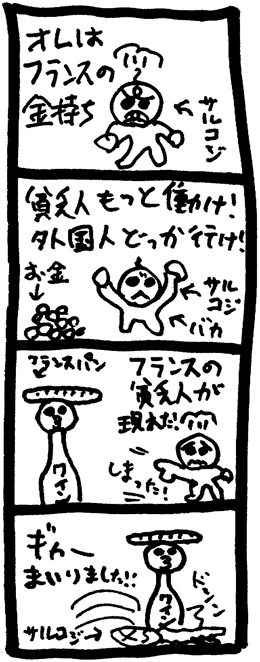 オレは
フランスの
金持ち
サルコジ
貧乏人もっと働け!
外人国人どっか行け!
お金
サルコジ
バカ
フランスパン
ワイン
フランスの
貧乏人が
現れた!
しまった!
ギャー
まいりました!!
ドシン
ワイン
サルコジ